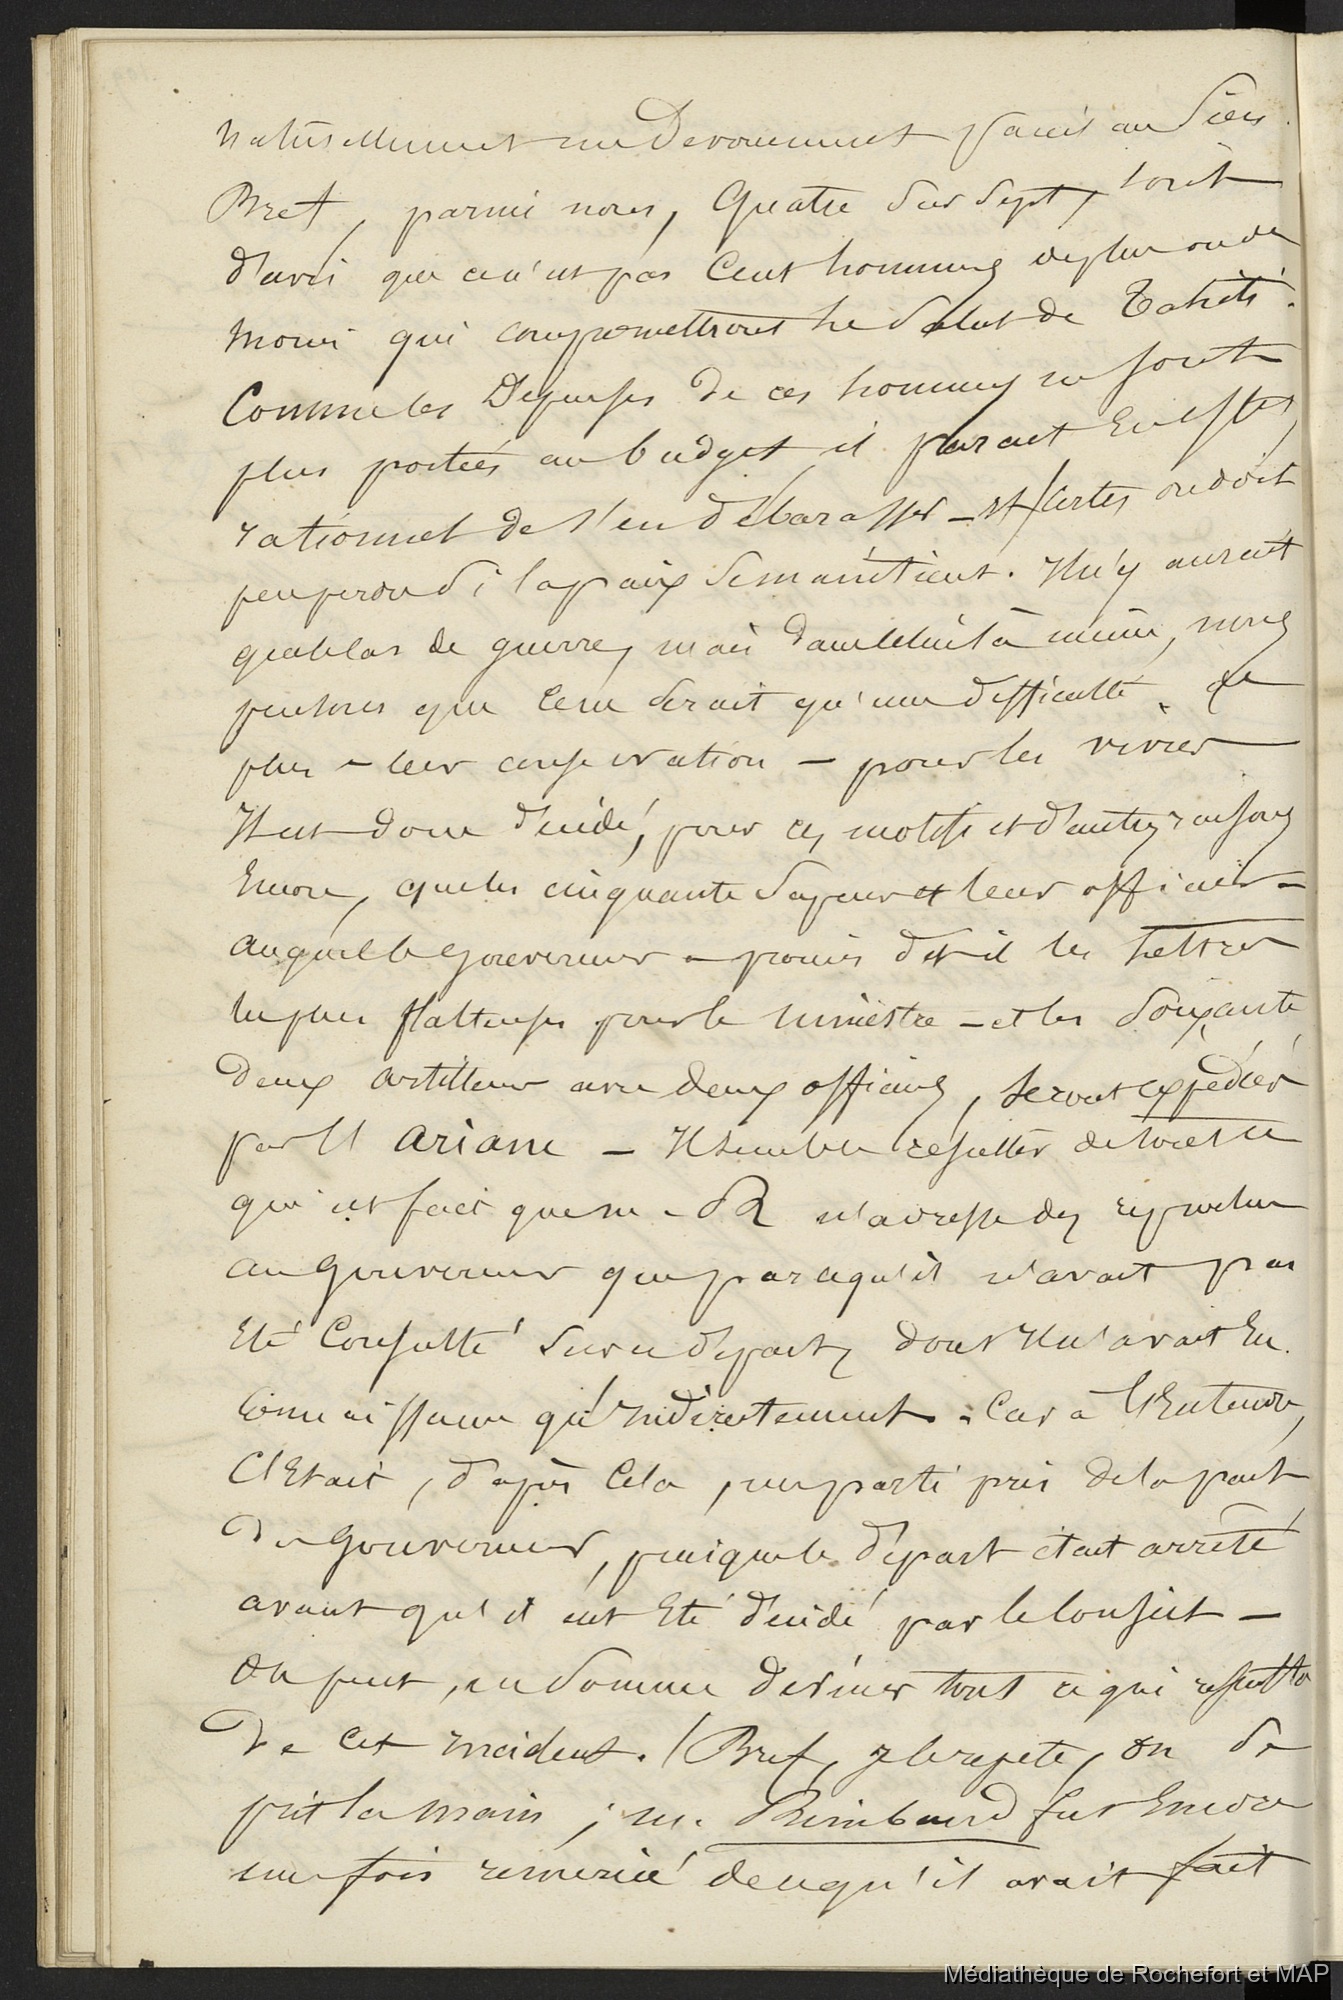 naturellement un Devouement pareil au Sien.
Bref, parmi nous, Quatre Sur Sept, sont
d'avis que ce n'est pas Cent hommes de plus ou de
moins qui compromettront le Salut de Tahiti.
Comme les Depenses de ces hommes ne sont
plus portées au budget il parait En effet,
rationnel de s'en débarasser - et certes on doit
peu perdre Si la paix Se maintient. Il n'y aurait
que le cas de guerre, mais dans celui là même, nous
pensons que Ce ne Serait qu'une difficulté de
plus - leur conservation - pour les vivres
Il est donc décidé, pour ces motifs et d'autres raisons
Encore, que les cinquante Sapeurs et leur officier -
auquel le Gouverneur a promis dit-il les lettres
les plus flatteuses pour le ministre - et les Soixante
deux artilleurs avec deux officiers, Seront expédiés
par l'Ariane - Il semble résulter de tout ce
qui est fait que M. R n'adresse des reproches
au Gouverneur que parcequ'il n'avait pas
Eté Consulté Sur ce départ, dont Il n'avait Eu
Connaissance qu'Indirectement. Car à l'Entendre,
C'Etait, d'après Cela, un parti pris de la part
du Gouverneur, puisque le départ était arrêté
avant qu'il eut Eté décidé par le Conseil -
On peut, en Somme deviner tout ce qui resulte
De Cet Incident. Bref, je le repete, on Se
prit la main ; M. Rimbaud fut Encore
une fois remercié de ce qu'il avait fait
Médiathèque de Rochefort et MAP